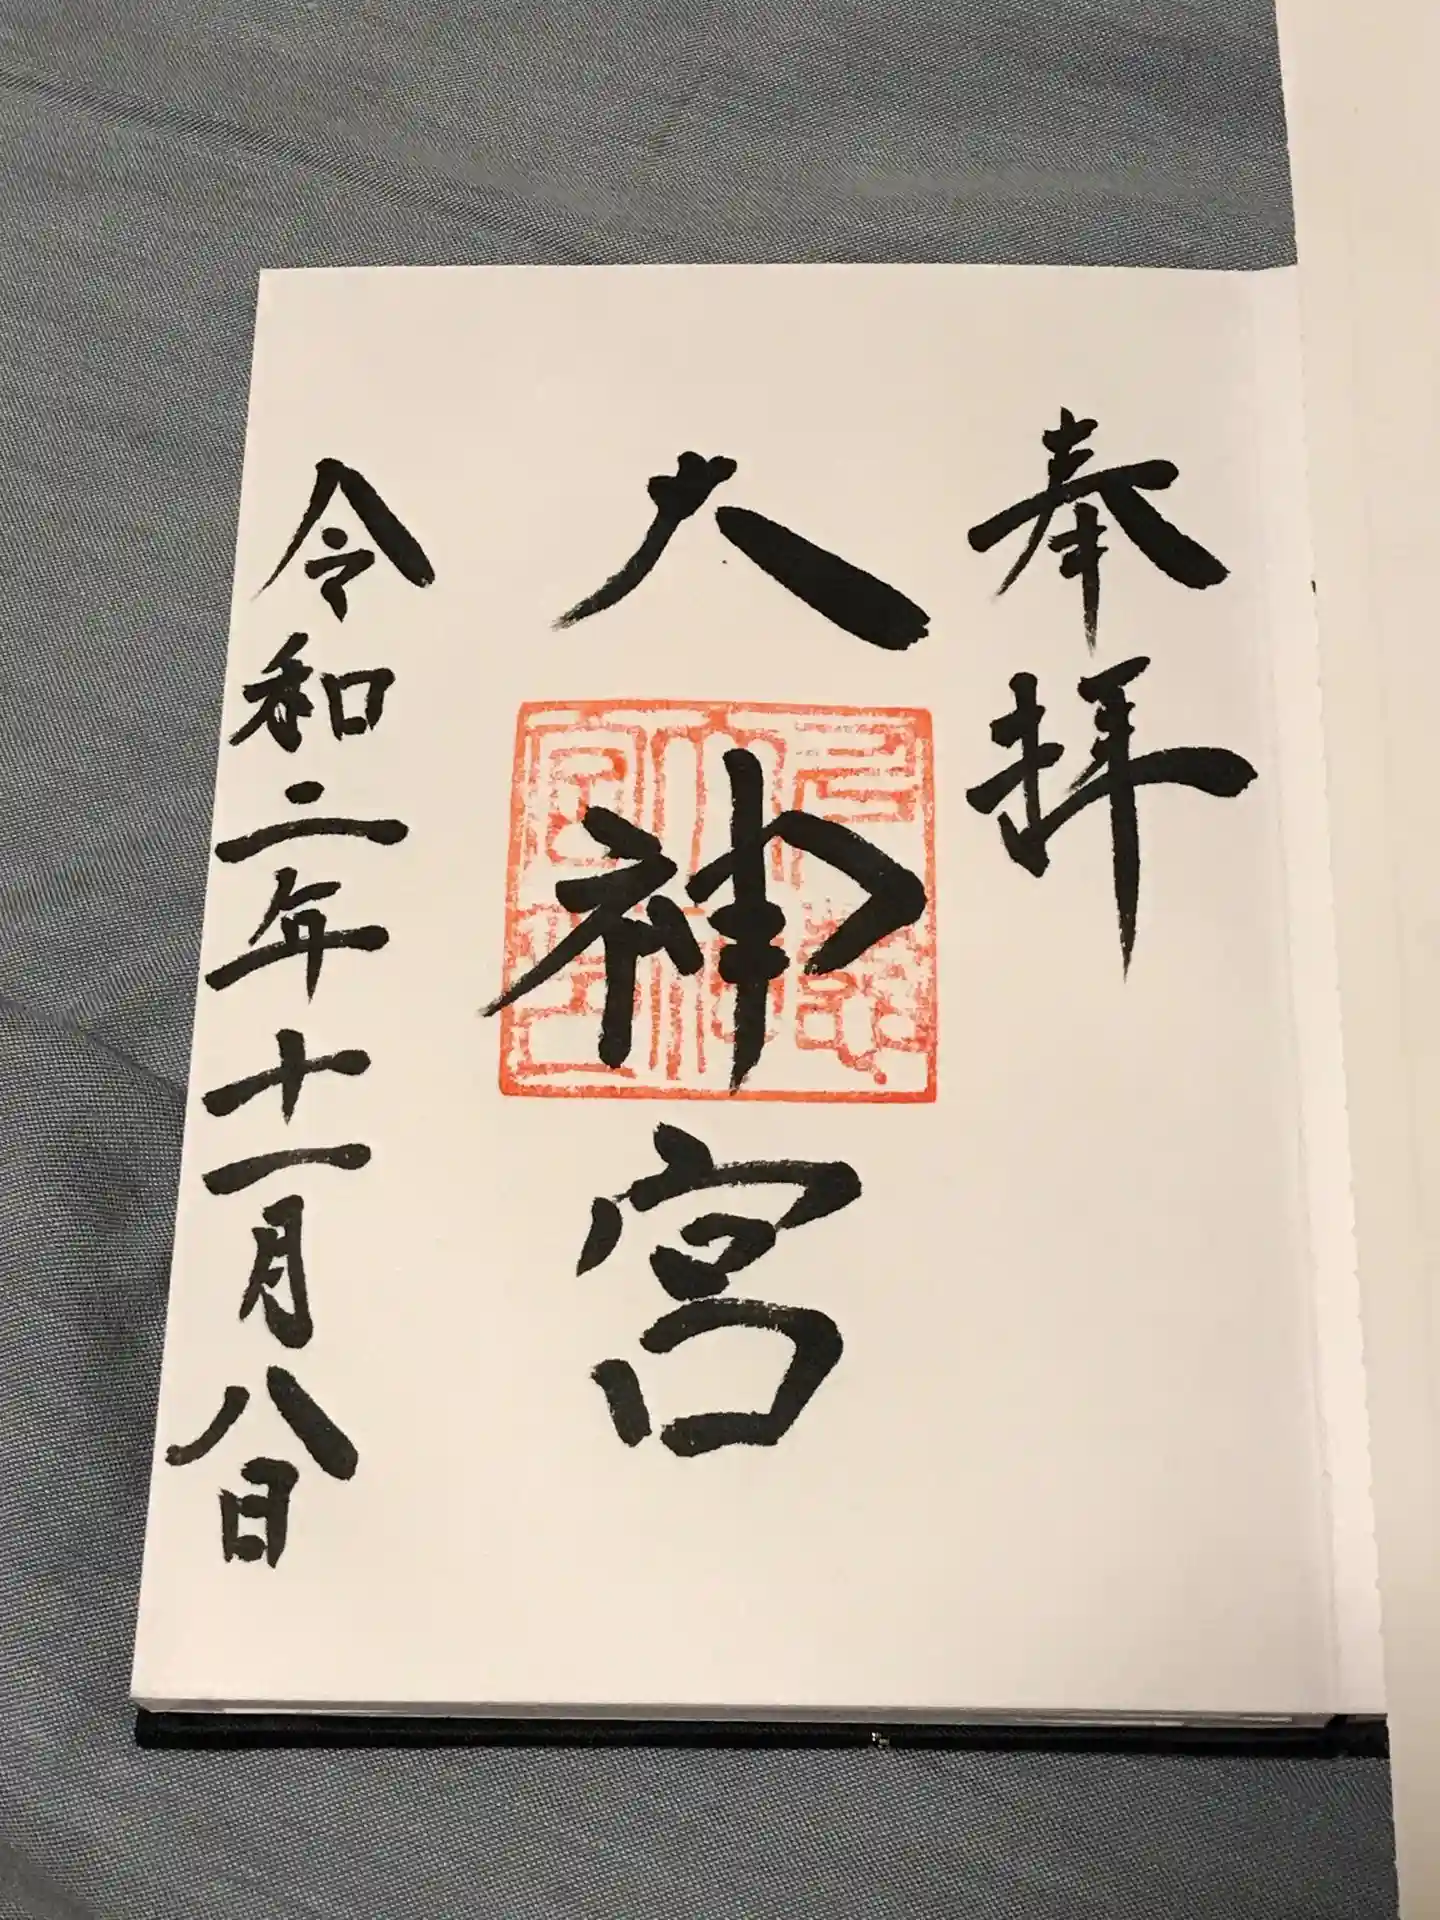 奉拝
大神宮
令和二年十一月八日